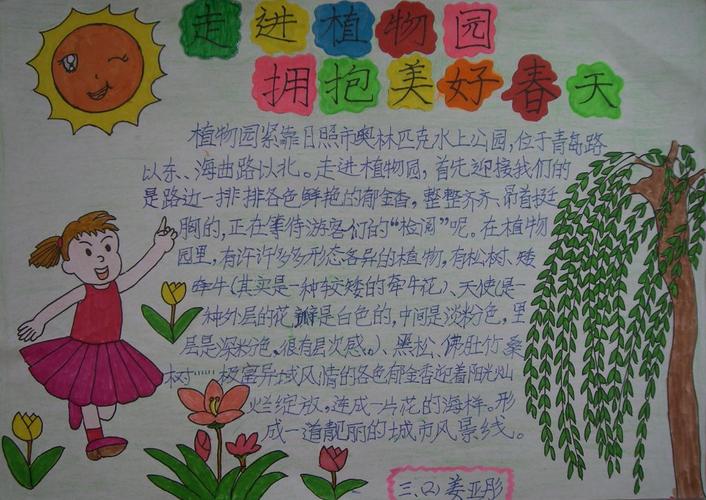 走进植物园
拥抱美好春天
植物园紧靠日照市奥林匹克水上公园,位于青岛路
以东、海曲路以北。走进植物园,首先迎接我们的
是路边一排排各色鲜艳的郁金香,整整齐齐、昂首挺
胸的,正在等待游客们的“检阅”呢。在植物
园里,有许许多多形态各异的植物,有松树、矮
牵牛(其实是一种较矮的牵牛花)、天使(是一
种外层的花瓣是白色的,中间是淡粉色,里
层是深粉色。很有层次感。)、黑松、佛肚竹、桑
树……极富异域风情的各色郁金香迎着阳光灿
烂绽放,连成一片花的海样。形
成一道靓丽的城市风景线。
三、(2) 姜亚彤